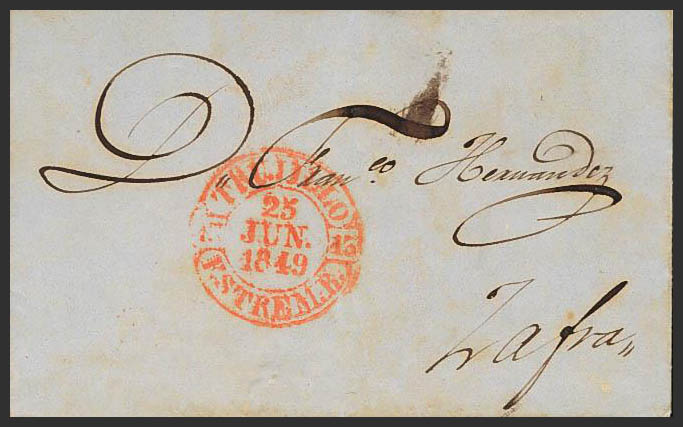 D. Fran.co Hernandez
TRUJILLO
25
JUN.
1849
13
ESTREM.B.
Zafra